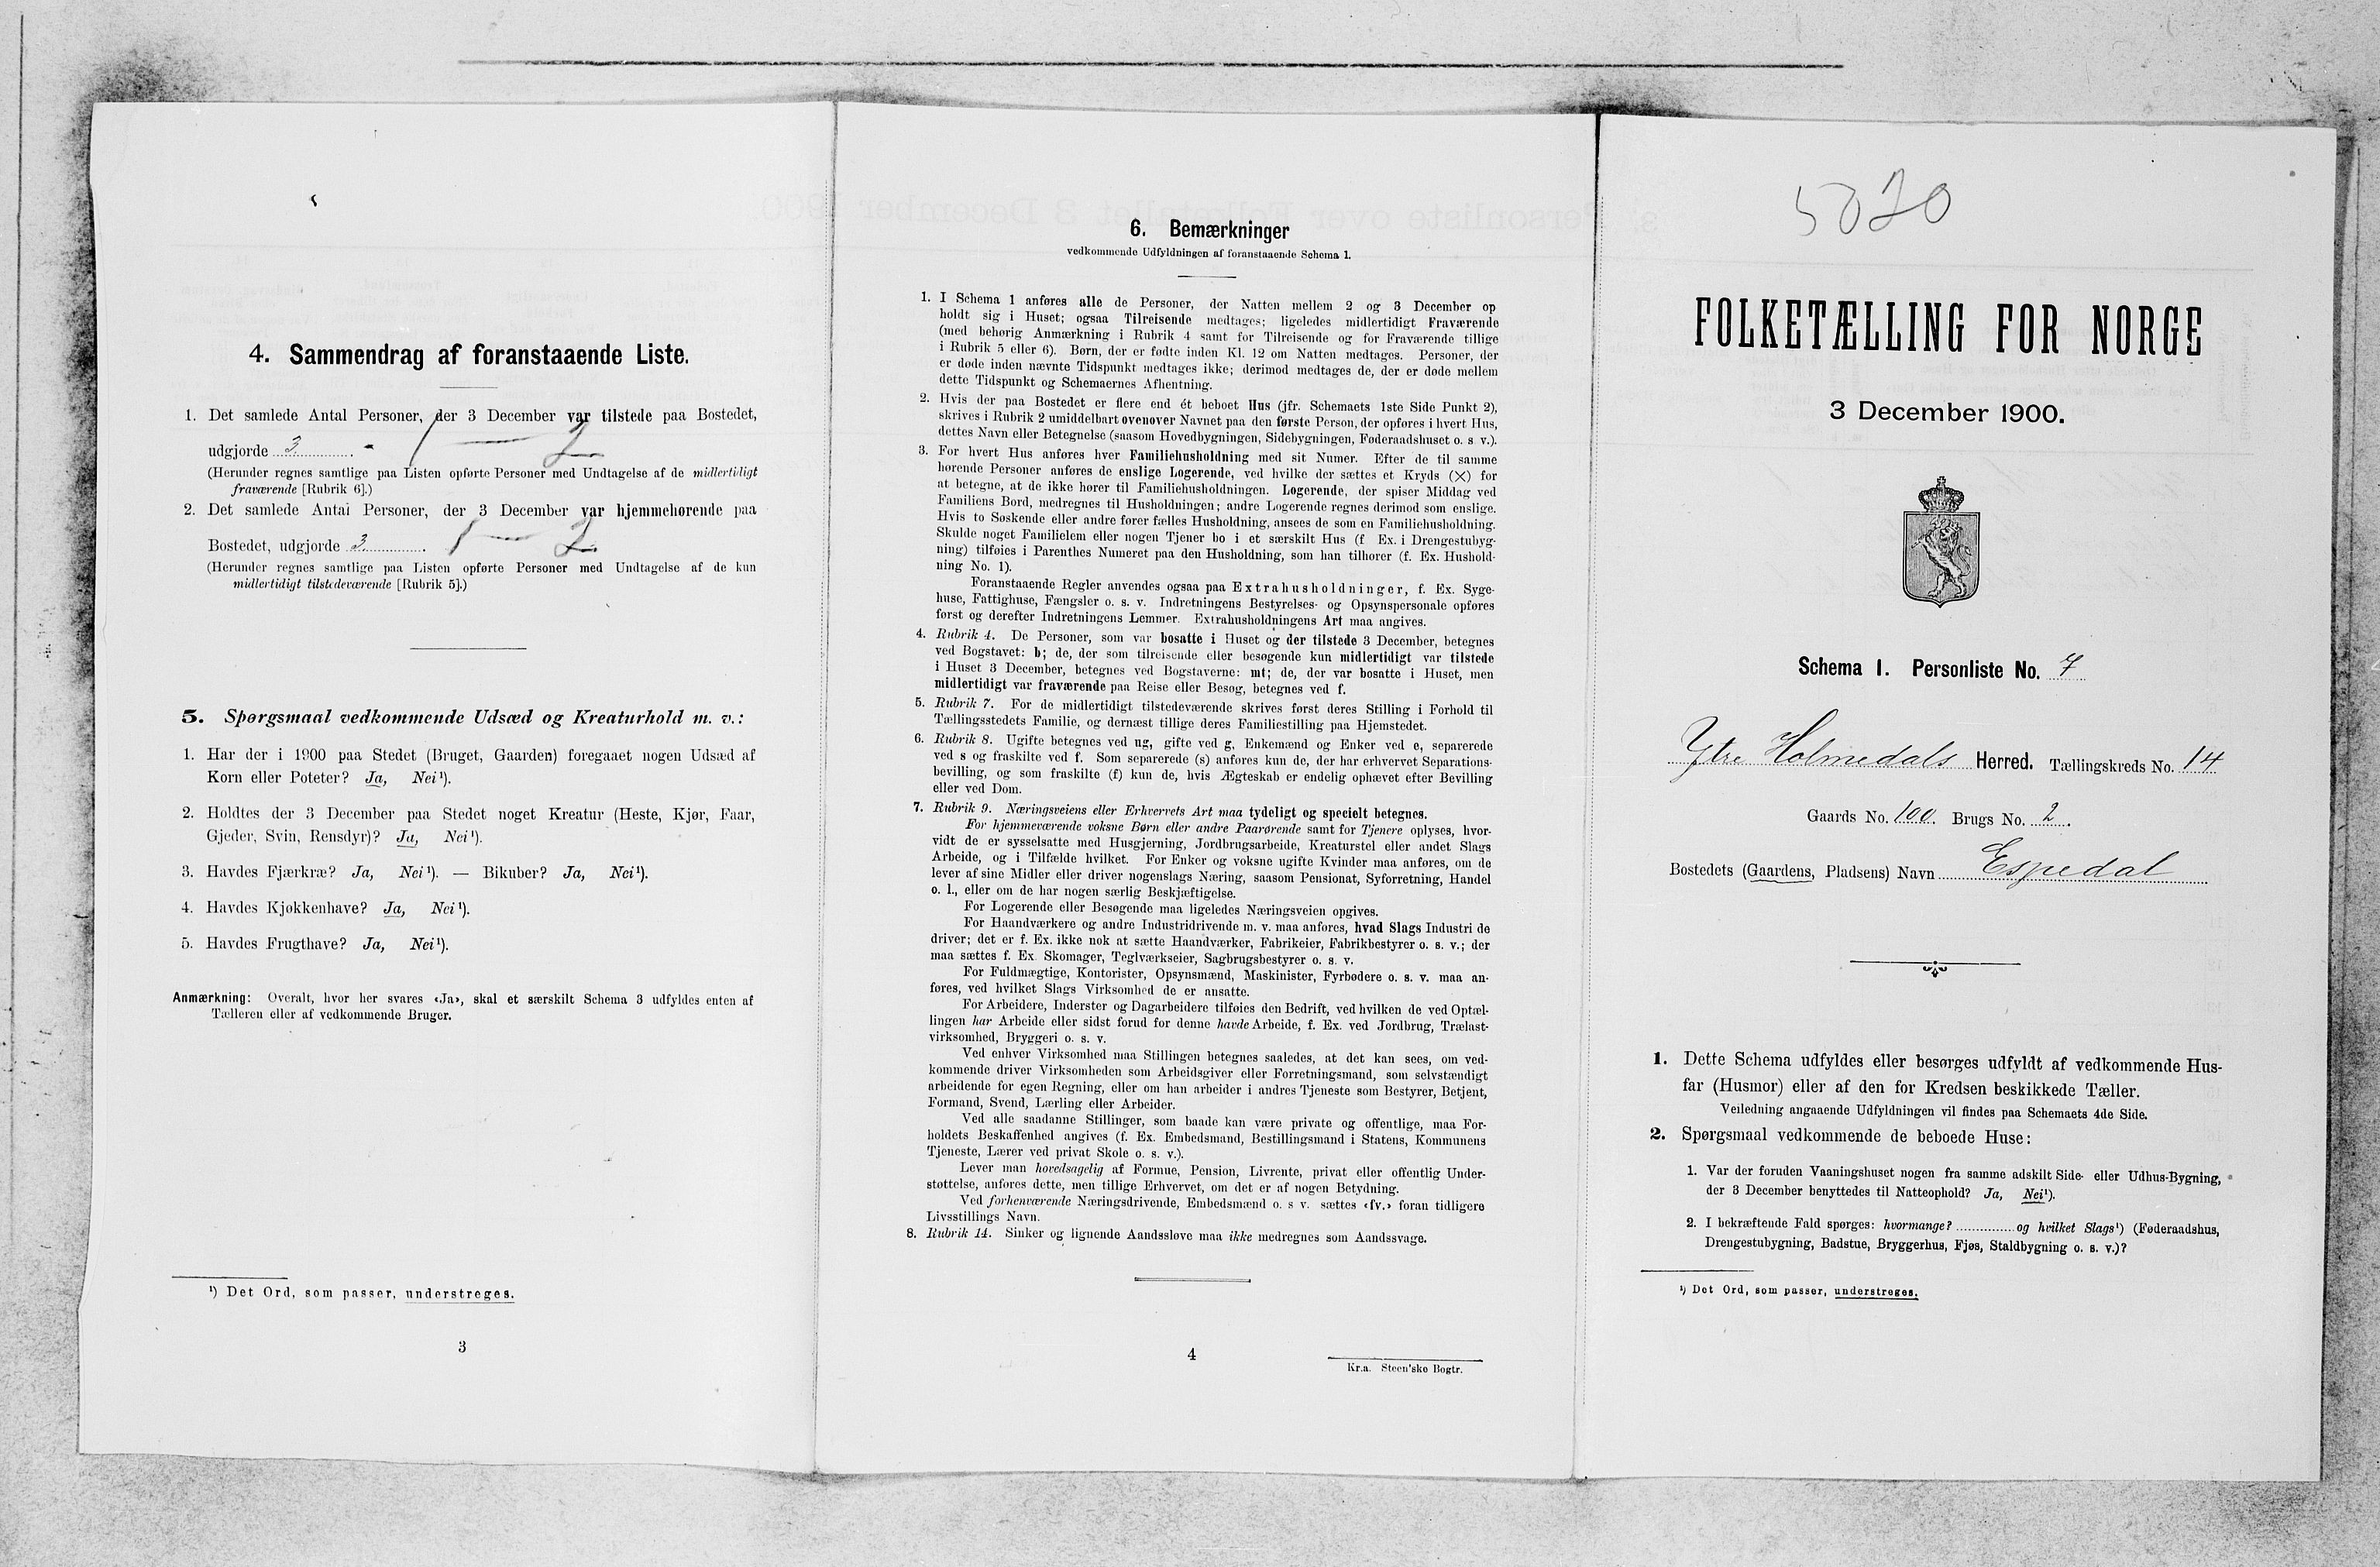 4. Sammendrag af foranstaaende Liste.
1. Det samlede Antal Personer, der 3 December var tilstede paa Bostedet,
udgjorde 3. 1 — 2
(Herunder regnes samtlige paa Listen opførte Personer med Undtagelse af de midlertidigt
fraværende [Rubrik 6].)
2. Det samlede Antal Personer, der 3 December var hjemmehørende paa
Bostedet, udgjorde 3. 1 — 2
(Herunder regnes samtlige paa Listen opførte Personer med Undtagelse af de kun
midlertidigt tilstedeværende [Rubrik 5].)
5. Spørgsmaal vedkommende Udsæd og Kreaturhold m. v.:
1. Har der i 1900 paa Stedet (Bruget, Gaarden) foregaaet nogen Udsæd af
Korn eller Poteter? Ja, Nei¹).
2. Holdtes der 3 December paa Stedet noget Kreatur (Heste, Kjør, Faar,
Gjeder, Svin, Rensdyr)? Ja, Nei¹).
3. Havdes Fjærkræ? Ja, Nei¹). — Bikuber? Ja, Nei¹).
4. Havdes Kjøkkenhave? Ja, Nei¹).
5. Havdes Frugthave? Ja, Nei¹).
Anmærkning: Overalt, hvor her svares «Ja», skal et særskilt Schema 3 udfyldes enten af
Tælleren eller af vedkommende Bruger.
¹) Det Ord, som passer, understreges.
3
6. Bemærkninger
vedkommende Udfyldningen af foranstaaende Schema 1.
1. I Schema 1 anføres alle de Personer, der Natten mellem 2 og 3 December op
holdt sig i Huset; ogsaa Tilreisende medtages; ligeledes midlertidigt Fraværende
(med behørig Anmærkning i Rubrik 4 samt for Tilreisende og for Fraværende tillige
i Rubrik 5 eller 6). Børn, der er fødte inden Kl. 12 om Natten medtages. Personer, der
er døde inden nævnte Tidspunkt medtages ikke; derimod medtages de, der er døde mellem
dette Tidspunkt og Schemaernes Afhentning.
2. Hvis der paa Bostedet er flere end ét beboet Hus (jfr. Schemaets 1ste Side Punkt 2),
skrives i Rubrik 2 umiddelbart ovenover Navnet paa den første Person, der opføres i hvert Hus,
dettes Navn eller Betegnelse (saasom Hovedbygningen, Sidebygningen, Føderaadshuset o. s v.).
3. For hvert Hus anføres hver Familiehusholdning med sit Numer. Efter de til samme
hørende Personer anføres de enslige Logerende, ved hvilke der sættes et Kryds (×) for
at betegne, at de ikke hører til Familiehusholdningen. Logerende, der spiser Middag ved
Familiens Bord, medregnes til Husholdningen; andre Logerende regnes derimod som enslige.
Hvis to Søskende eller andre fører fælles Husholdning, ansees de som en Familiehusholdning.
Skulde noget Familielem eller nogen Tjener bo i et særskilt Hus (f Ex. i Drengestubyg-
ning) tilføies i Parenthes Numeret paa den Husholdning, som han tilhører (f. Ex. Hushold-
ning No. 1).
Foranstaaende Regler anvendes ogsaa paa Extrahusholdninger, f. Ex. Syge-
huse, Fattighuse, Fængsler o. s. v. Indretningens Bestyrelses- og Opsynspersonale opføres
først og derefter Indretningens Lemmer. Extrahusholdningens Art maa angives.
4. Rubrik 4. De Personer, som var bosatte i Huset og der tilstede 3 December, betegnes
ved Bogstavet: b; de, der som tilreisende eller besøgende kun midlertidigt var tilstede
i Huset 3 December, betegnes ved Bogstaverne: mt; de, der var bosatte i Huset, men
midlertidigt var fraværende paa Reise eller Besøg, betegnes ved f.
5. Rubrik 7. For de midlertidigt tilstedeværende skrives først deres Stilling i Forhold til
Tællingsstedets Familie, og dernæst tillige deres Familiestilling paa Hjemstedet.
6. Rubrik 8. Ugifte betegnes ved ug, gifte ved g, Enkemænd og Enker ved e, separerede
ved s og fraskilte ved f. Som separerede (s) anføres kun de, der har erhvervet Separations-
bevilling, og som fraskilte (f) kun de, hvis Ægteskab er endelig ophævet efter Bevilling
eller ved Dom.
7. Rubrik 9. Næringsveiens eller Erhvervets Art maa tydeligt og specielt betegnes.
For hjemmeværende voksne Børn eller andre Paarørende samt for Tjenere oplyses, hvor-
vidt de er sysselsatte med Husgjerning, Jordbrugsarbeide, Kreaturstel eller andet Slags
Arbeide, og i Tilfælde hvilket. For Enker og voksne ugifte Kvinder maa anføres, om de
lever af sine Midler eller driver nogenslags Næring, saasom Pensionat, Syforretning, Handel
o. l., eller om de har nogen særlig Beskjæftigelse.
For Logerende eller Besøgende maa ligeledes Næringsveien opgives.
For Haandværkere og andre Industridrivende m. v. maa anføres, hvad Slags Industri de
driver; det er f. Ex. ikke nok at sætte Haandværker, Fabrikeier, Fabrikbestyrer o. s. v.; der
maa sættes f. Ex. Skomager, Teglværkseier, Sagbrugsbestyrer o. s. v.
For Fuldmægtige, Kontorister, Opsynsmænd, Maskinister, Fyrbødere o. s. v. maa an-
føres, ved hvilket Slags Virksomhed de er ansatte.
For Arbeidere, Inderster og Dagarbeidere tilføies den Bedrift, ved hvilken de ved Optæl-
lingen har Arbeide eller sidst forud for denne havde Arbeide, f. Ex. ved Jordbrug, Trælast-
virksomhed, Bryggeri o. s. v.
Ved enhver Virksomhed maa Stillingen betegnes saaledes, at det kan sees, om ved-
kommende driver Virksomheden som Arbeidsgiver eller Forretningsmand, som selvstændigt
arbeidende for egen Regning, eller om han arbeider i andres Tjeneste som Bestyrer, Betjent,
Formand, Svend, Lærling eller Arbeider.
Ved alle saadanne Stillinger, som baade kan være private og offentlige, maa For-
holdets Beskaffenhed angives (f. Ex. Embedsmand, Bestillingsmand i Statens, Kommunens
Tjeneste, Lærer ved privat Skole o. s. v.).
Lever man hovedsagelig af Formue, Pension, Livrente, privat eller offentlig Under-
støttelse, anføres dette, men tillige Erhvervet, om det er af nogen Betydning.
Ved forhenværende Næringsdrivende, Embedsmænd o. s v. sættes «fv.» foran tidligere
Livsstillings Navn.
8. Rubrik 14. Sinker og lignende Aandssløve maa ikke medregnes som Aandssvage.
4
Kr.a. Steen'ske Bogtr.
5020
FOLKETÆLLING FOR NORGE
3 December 1900.
Schema 1. Personliste No. 7
Ytre Holmedals Herred. Tællingskreds No. 14
Gaards No. 100. Brugs No. 2.
Bostedets (Gaardens, Pladsens) Navn Espedal
1. Dette Schema udfyldes eller besørges udfyldt af vedkommende Hus-
far (Husmor) eller af den for Kredsen beskikkede Tæller.
Veiledning angaaende Udfyldningen vil findes paa Schemaets 4de Side.
2. Spørgsmaal vedkommende de beboede Huse:
1. Var der foruden Vaaningshuset nogen fra samme adskilt Side- eller Udhus-Bygning,
der 3 December benyttedes til Natteophold? Ja, Nei¹).
2. I bekræftende Fald spørges: hvormange? og hvilket Slags¹) (Føderaadshus,
Drengestubygning, Badstue, Bryggerhus, Fjøs, Staldbygning o. s. v.)?
¹) Det Ord, som passer, understreges.